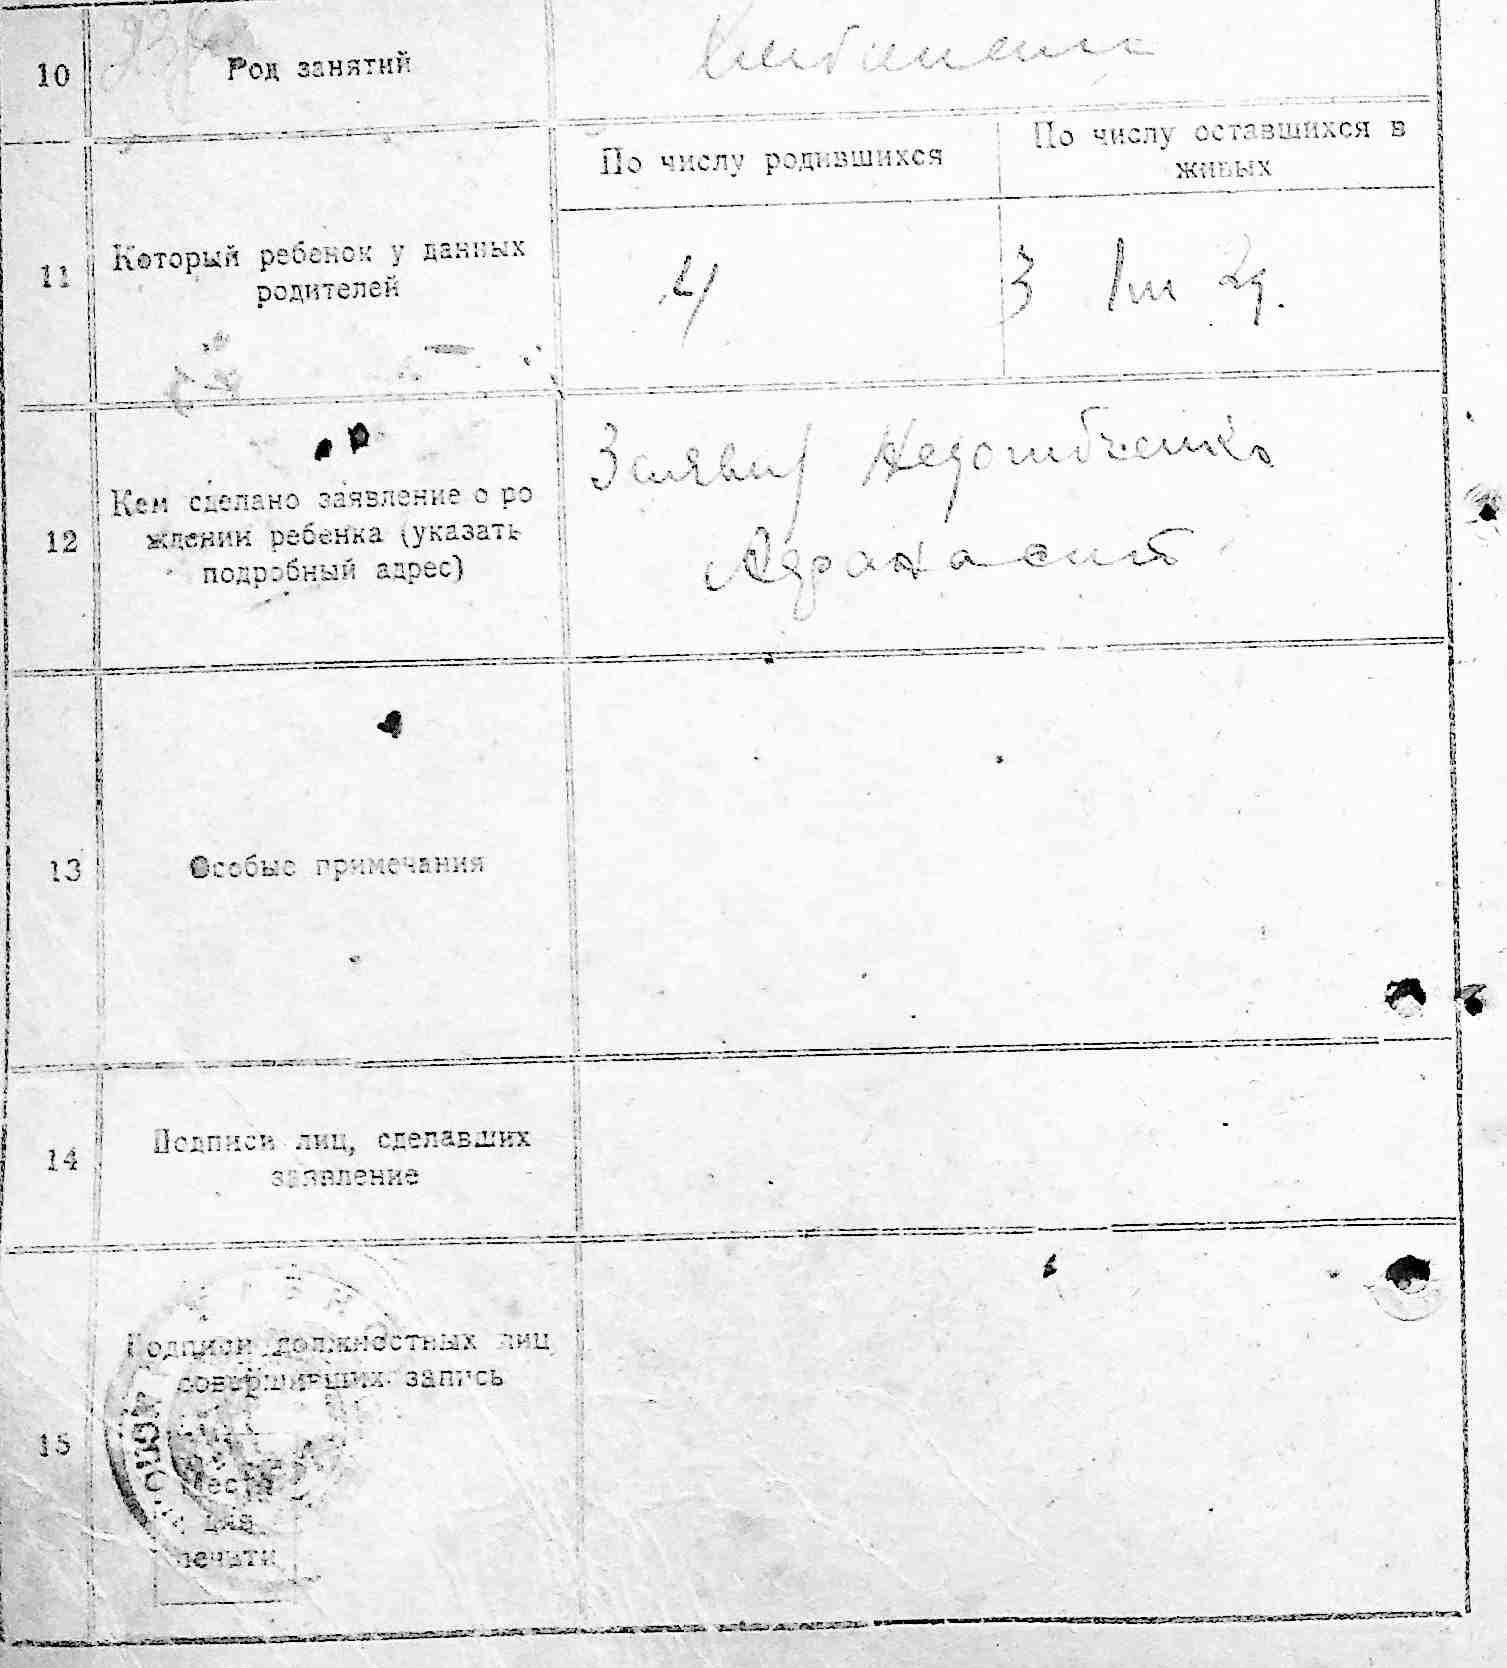 10
Род занятий
По числу родившихся
По числу оставшихся в
живых
11
Который ребенок у данных
родителей
4
3
12
Кем сделано заявление о ро
ждении ребенка (указать
подробный адрес)
Заявил
13
Особые примечания
14
Подписи лиц, сделавших
заявление
15
Подписи должностных лиц
совершивших запись
Место
для
печати